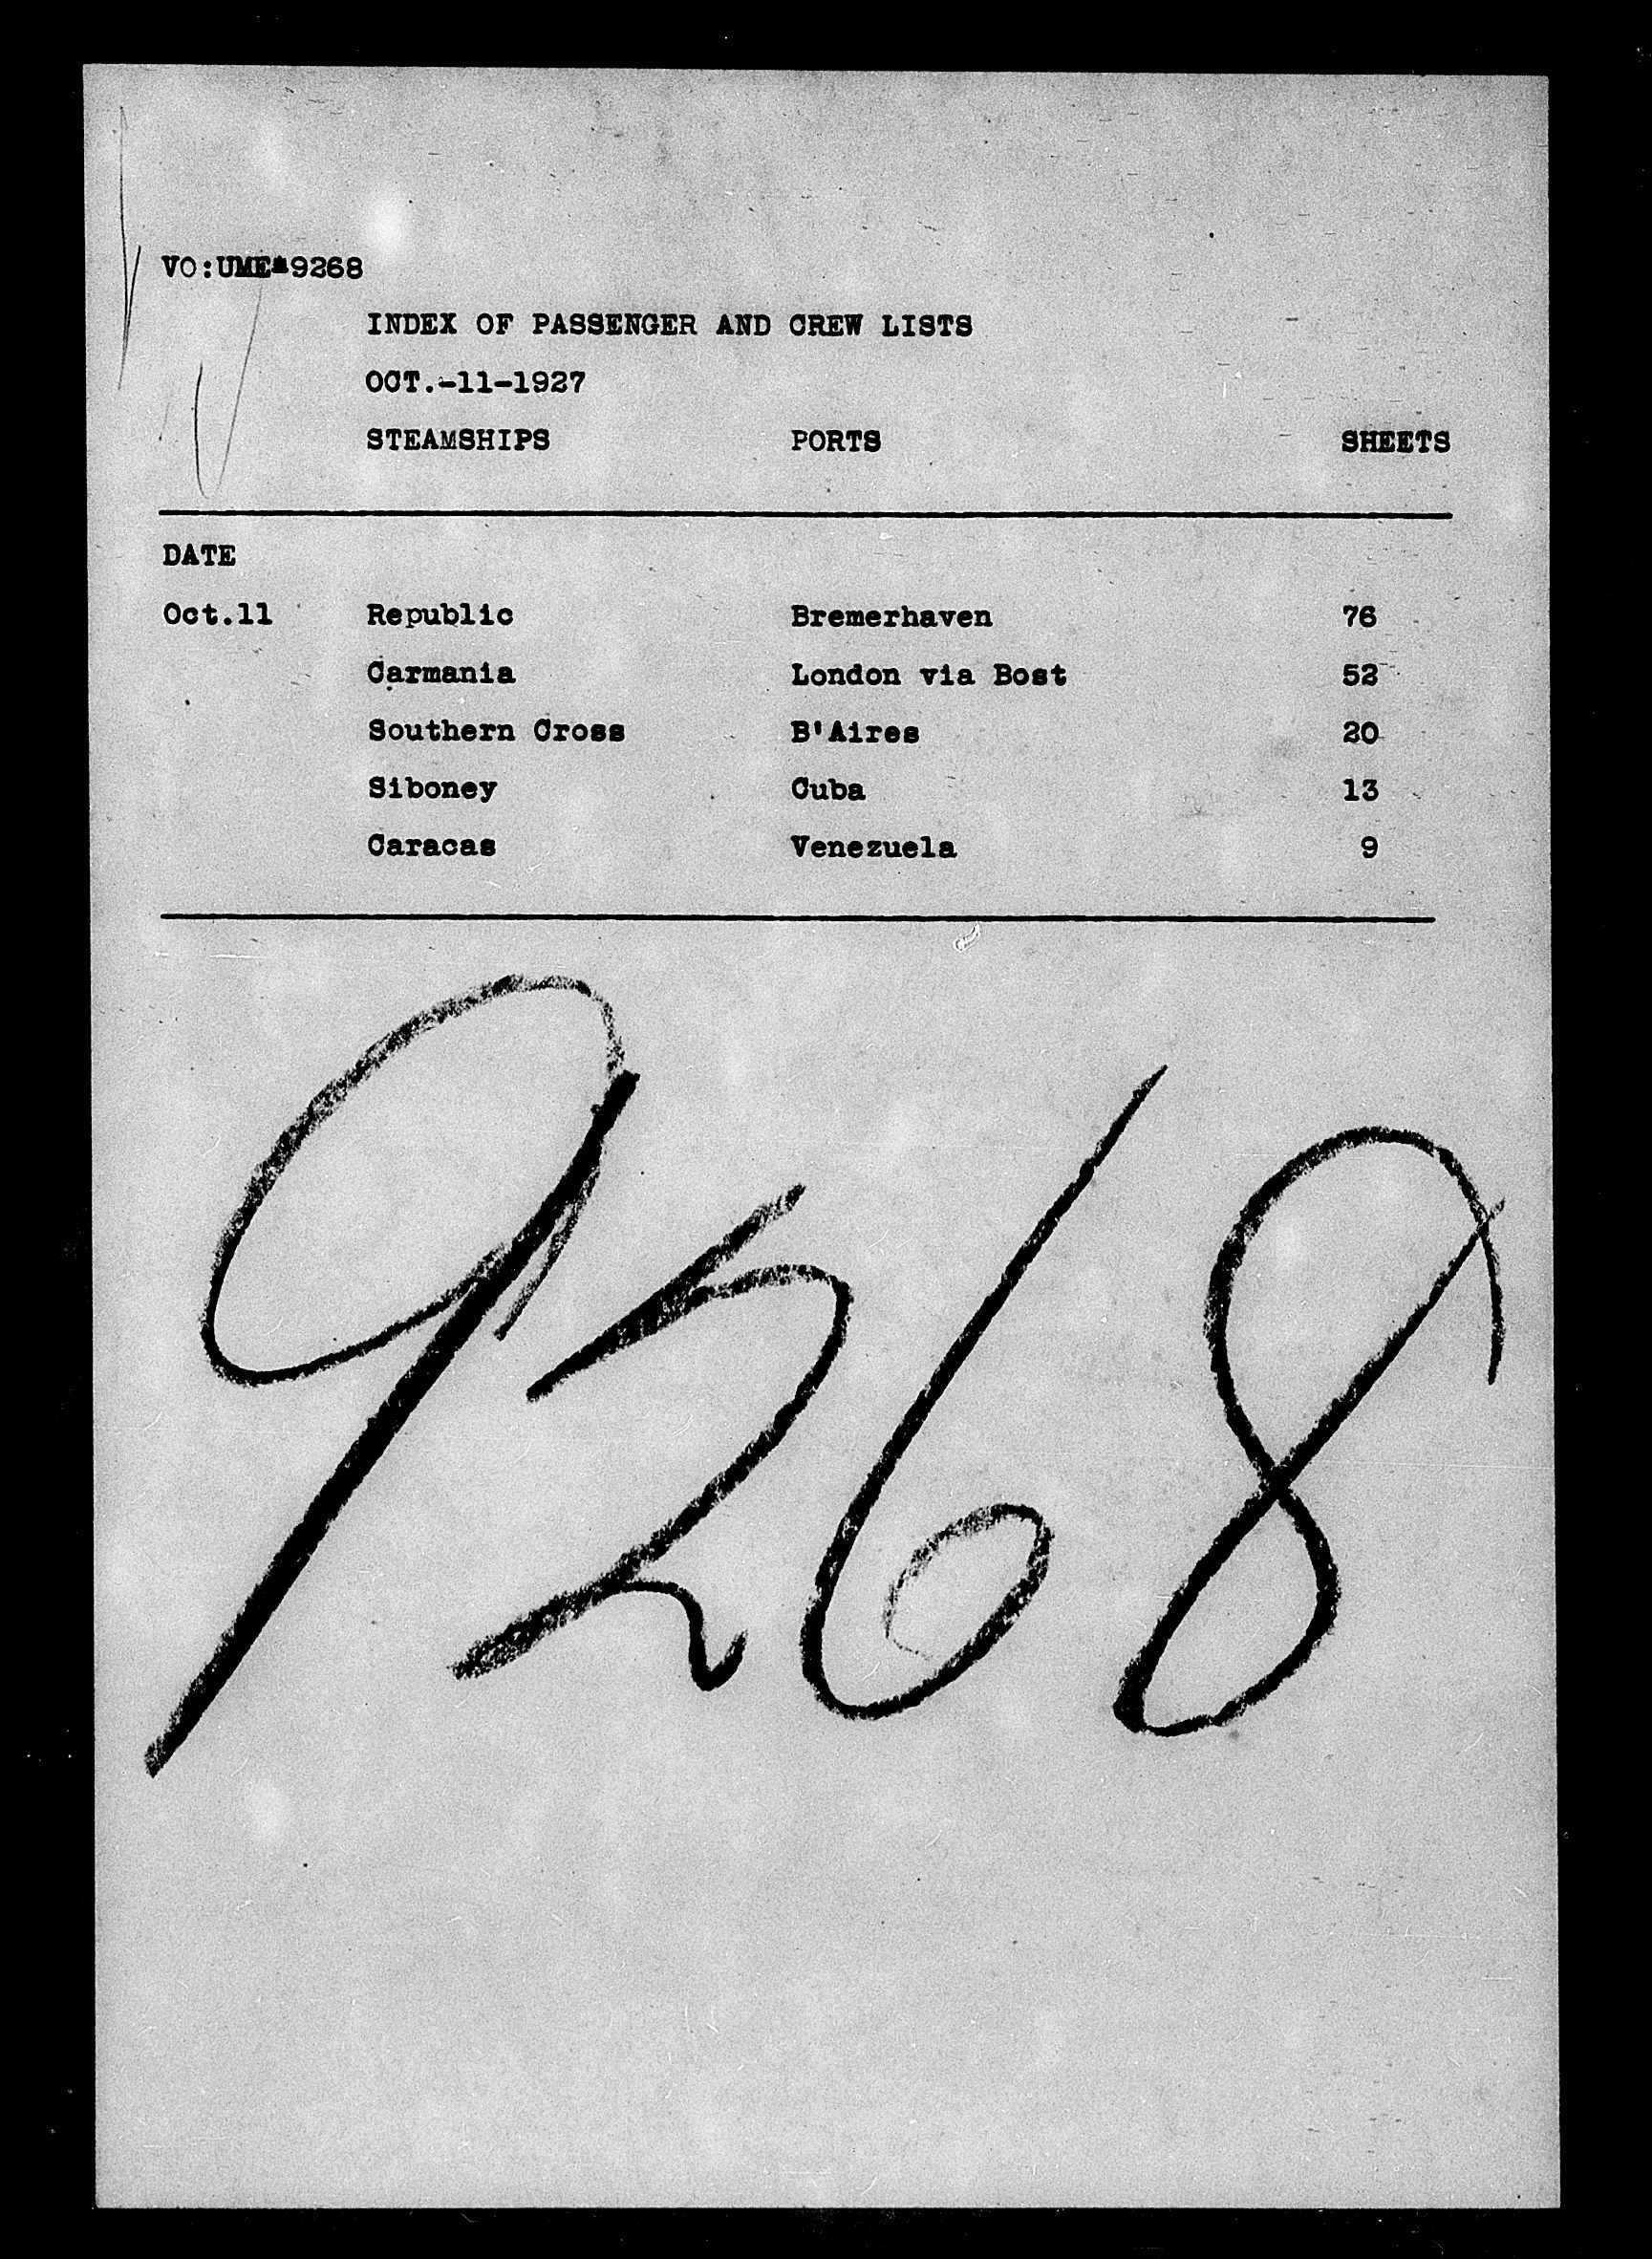 VO:UME 9268
INDEX OF PASSENGER AND CREW LISTS
OCT.-11-1927
STEAMSHIPS PORTS SHEETS
DATE
Oct.11 Republic Bremerhaven 76
Carmania London via Bost 52
Southern Cross B'Aires 20
Siboney Cuba 13
Caracas Venezuela 9
9268